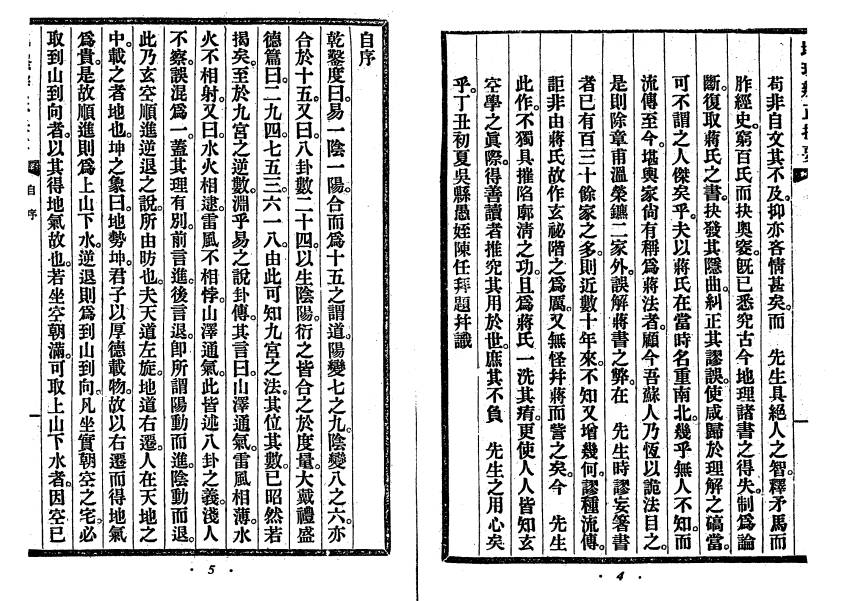 苟非自文其不及抑亦吝情甚矣。而　先生具絕人之智。釋矛馬而
胙經史。窮百氏而抉奧窔。旣已悉究古今地理諸書之得失。制爲論
斷。復取蔣氏之書。抉發其隱曲。糾正其謬誤。使咸歸於理解之碻當。
可不謂之人傑矣乎。夫以蔣氏在當時名重南北。幾乎無人不知。而
流傳至今。堪輿家尙有稱爲蔣法者。顧今吾蘇人乃恆以詭法目之。
是則除章甫溫榮鑣二家外。誤解蔣書之弊。在　先生時謬妄箸書
者已有百三十餘家之多。則近數十年來。不知又增幾何。謬種流傳。
詎非由蔣氏故作玄祕階之爲厲。又無怪幷蔣而訾之矣。今　先生
此作。不獨具摧陷廓清之功。且爲蔣氏一洗其痏。更使人人皆知玄
空學之眞際。得善讀者推究其用於世。庶其不負　先生之用心矣
乎。丁丑初夏吳縣愚姪陳任拜題幷識
· 4 ·
自序
乾鑿度曰。易一陰一陽。合而爲十五之謂道。陽變七之九。陰變八之六。亦
合於十五。又曰。八卦數二十四。以生陰陽。衍之皆合之於度量。大戴禮盛
德篇曰。二九四七五三六一八。由此可知九宮之法。其位其數。已昭然若
揭矣。至於九宮之逆數。淵乎易之說卦傳。其言曰。山澤通氣。雷風相薄。水
火不相射。又曰。水火相逮。雷風不相悖。山澤通氣。此皆述八卦之義。淺人
不察。誤混爲一。蓋其理有別。前言進。後言退。卽所謂陽動而進。陰動而退。
此乃玄空順進逆退之說所由昉也。夫天道左旋。地道右遷。人在天地之
中。載之者地也。坤之象曰。地勢坤。君子以厚德載物。故以右遷而得地氣
爲貴。是故順進則爲上山下水。逆退則爲到山到向。凡坐實朝空之宅。必
取到山到向者。以其得地氣故也。若坐空朝滿。可取上山下水者。因空已
自序
一
· 5 ·